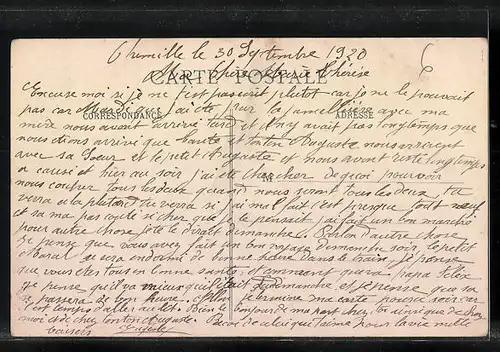 Chemillé le 30 Septembre 1920
Chère Marie Thérèse
CARTE POSTALE
CORRESPONDANCE
ADRESSE
Excuse moi si je ne t'est pas écrit plutot car je ne le pouvait
pas car Mardi que j'ai été sur la avec ma
mère nous avont arrivé tard et il n'y avait pas longtemps que
nous étions arrivé que tante et tonton Auguste nous arrivent
avec sa Soeur et le petit Auguste et nous avont resté longtemps
a causé et hier au soir j'ai été chercher de quoi pouvoir
nous coucher tous les deux quand nous seront tous les deux, tu
vera si j'ai mal fait c'est presque tout neuf
et sa ma pas couté si cher que je le pensait j'ai fait un bon marché
pour autre chose je te le dirait dimanche. Parlon d'autre chose
Je pense que vous avez fait un bon voyage dimanche soir, le petit
Marcel se sera endormit de bonne heure dans le train, je pense
que vous êtes tous en bonne santé, et comment que va papa Félix
je pense qu'il va mieux qu'il était dimanche et je pense que sa
se passera de bonne heure. je termine ma carte pour ce soir car
c'est temps d'aller au lit. Bien le bonjour de ma part chez toi ainsi que de chez
moi et de chez tonton Auguste. Reçoi de celui qui t'aime pour la vie mille
baisers